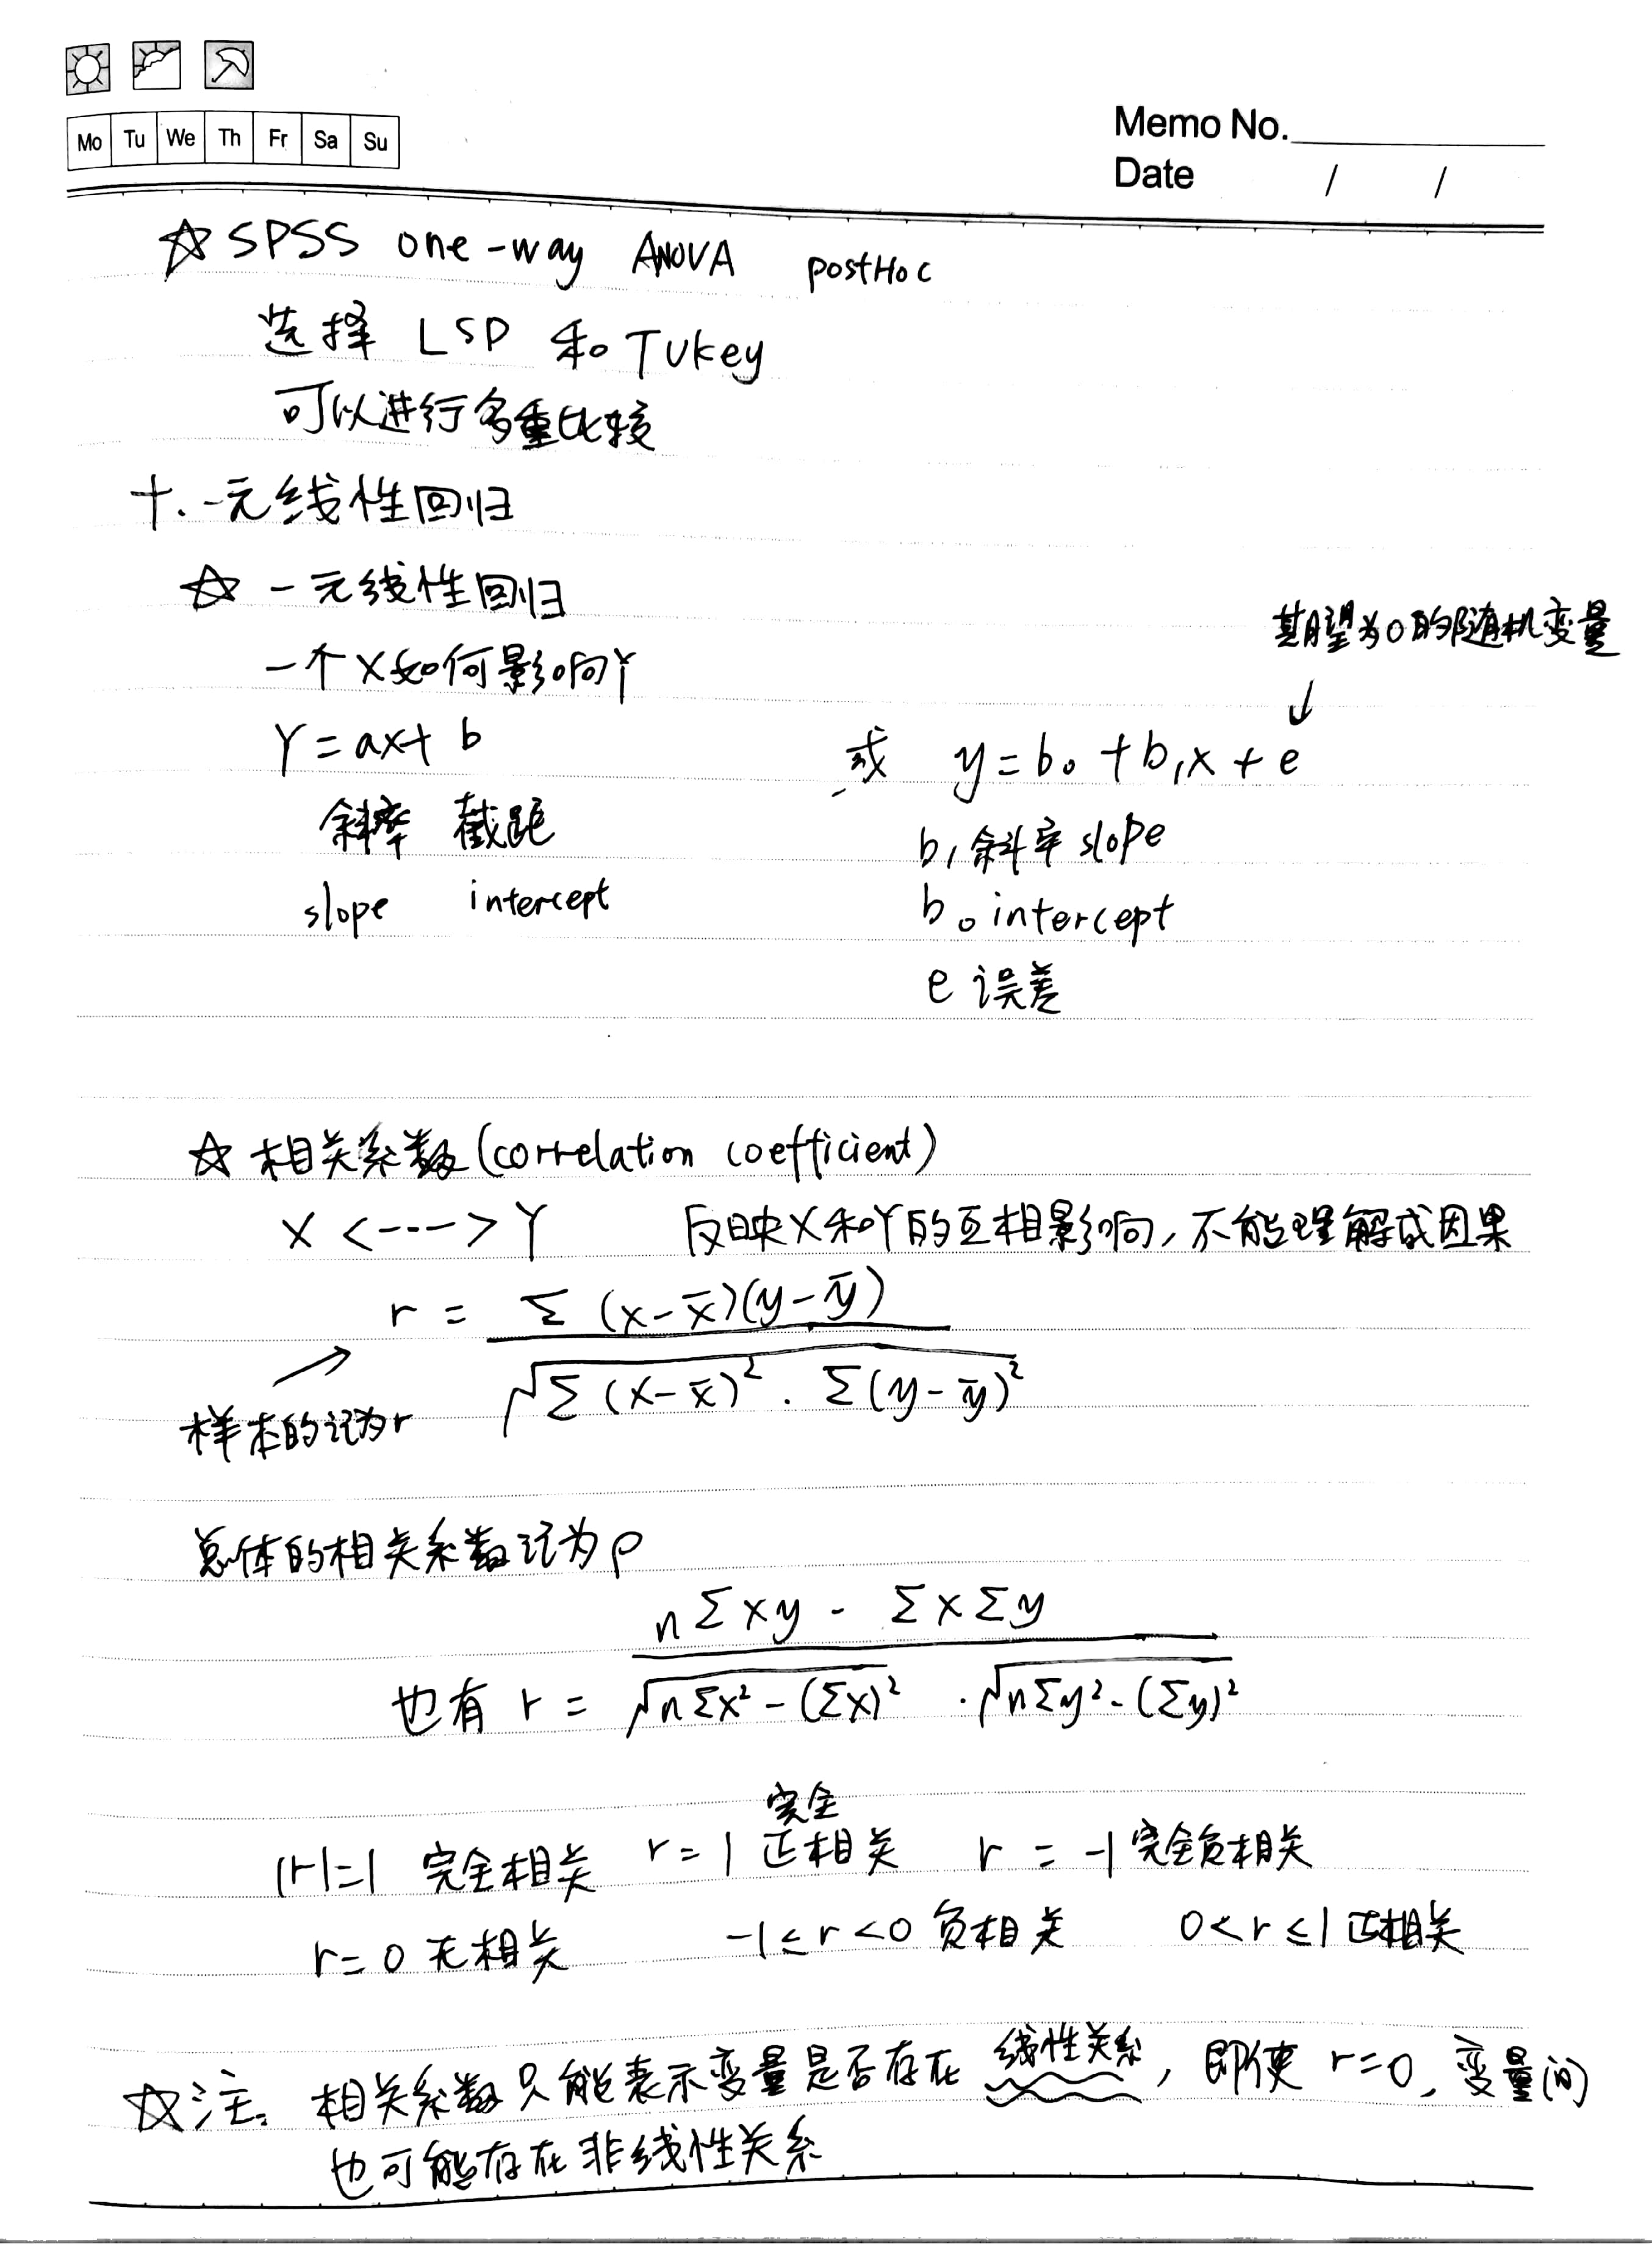 Mo Tu We Th Fr Sa Su
Memo No.
Date / /
☆ SPSS one-way ANOVA postHoc
选择 LSD 和 Tukey
可以进行多重比较
十.一元线性回归
☆ 一元线性回归
一个X如何影响Y
期望为0的随机变量
↓
Y=ax+b
或 y=b₀+b₁x+e
斜率 截距
b₁斜率slope
slope intercept
b₀ intercept
e 误差
☆ 相关系数(correlation coefficient)
X <---> Y 反映X和Y的互相影响,不能理解成因果
r = Σ(x-x̄)(y-ȳ) / √Σ(x-x̄)²·Σ(y-ȳ)²
样本的记为r
总体的相关系数记为ρ
也有 r = nΣxy - ΣxΣy / √nΣx²-(Σx)² · √nΣy²-(Σy)²
|r|=1 完全相关 r=1 完全正相关 r=-1完全负相关
r=0 无相关 -1≤r<0 负相关 0<r≤1正相关
☆注. 相关系数只能表示变量是否存在 线性关系, 即使 r=0, 变量间
也可能存在非线性关系